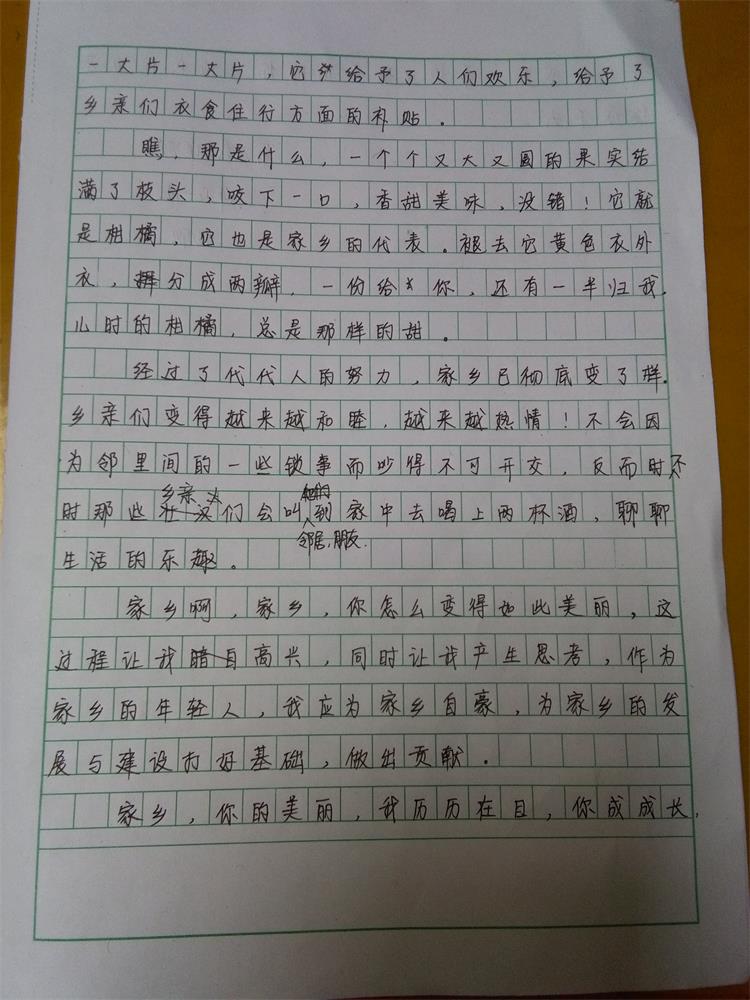 一大片一大片，它给予了人们欢乐，给予了
乡亲们衣食住行方面的补贴。
瞧，那是什么，一个个又大又圆的果实结
满了枝头，咬下一口，香甜美味，没错！它就
是柑橘，它也是家乡的代表。褪去它黄色衣外
衣，分成两瓣，一份给你，还有一半归我.
儿时的柑橘，总是那样的甜。
经过了代代人的努力，家乡已彻底变了样.
乡亲们变得越来越和睦，越来越热情！不会因
为邻里间的一些锁事而吵得不可开交，反而时不
乡亲
时那些们会叫到家中去喝上两杯酒，聊聊
邻居，朋友.
生活的乐趣。
家乡啊，家乡，你怎么变得如此美丽，这
过程让我暗自高兴，同时让我产生思考，作为
家乡的年轻人，我应为家乡自豪，为家乡的发
展与建设打好基础，做出贡献。
家乡，你的美丽，我历历在目，你成成长，